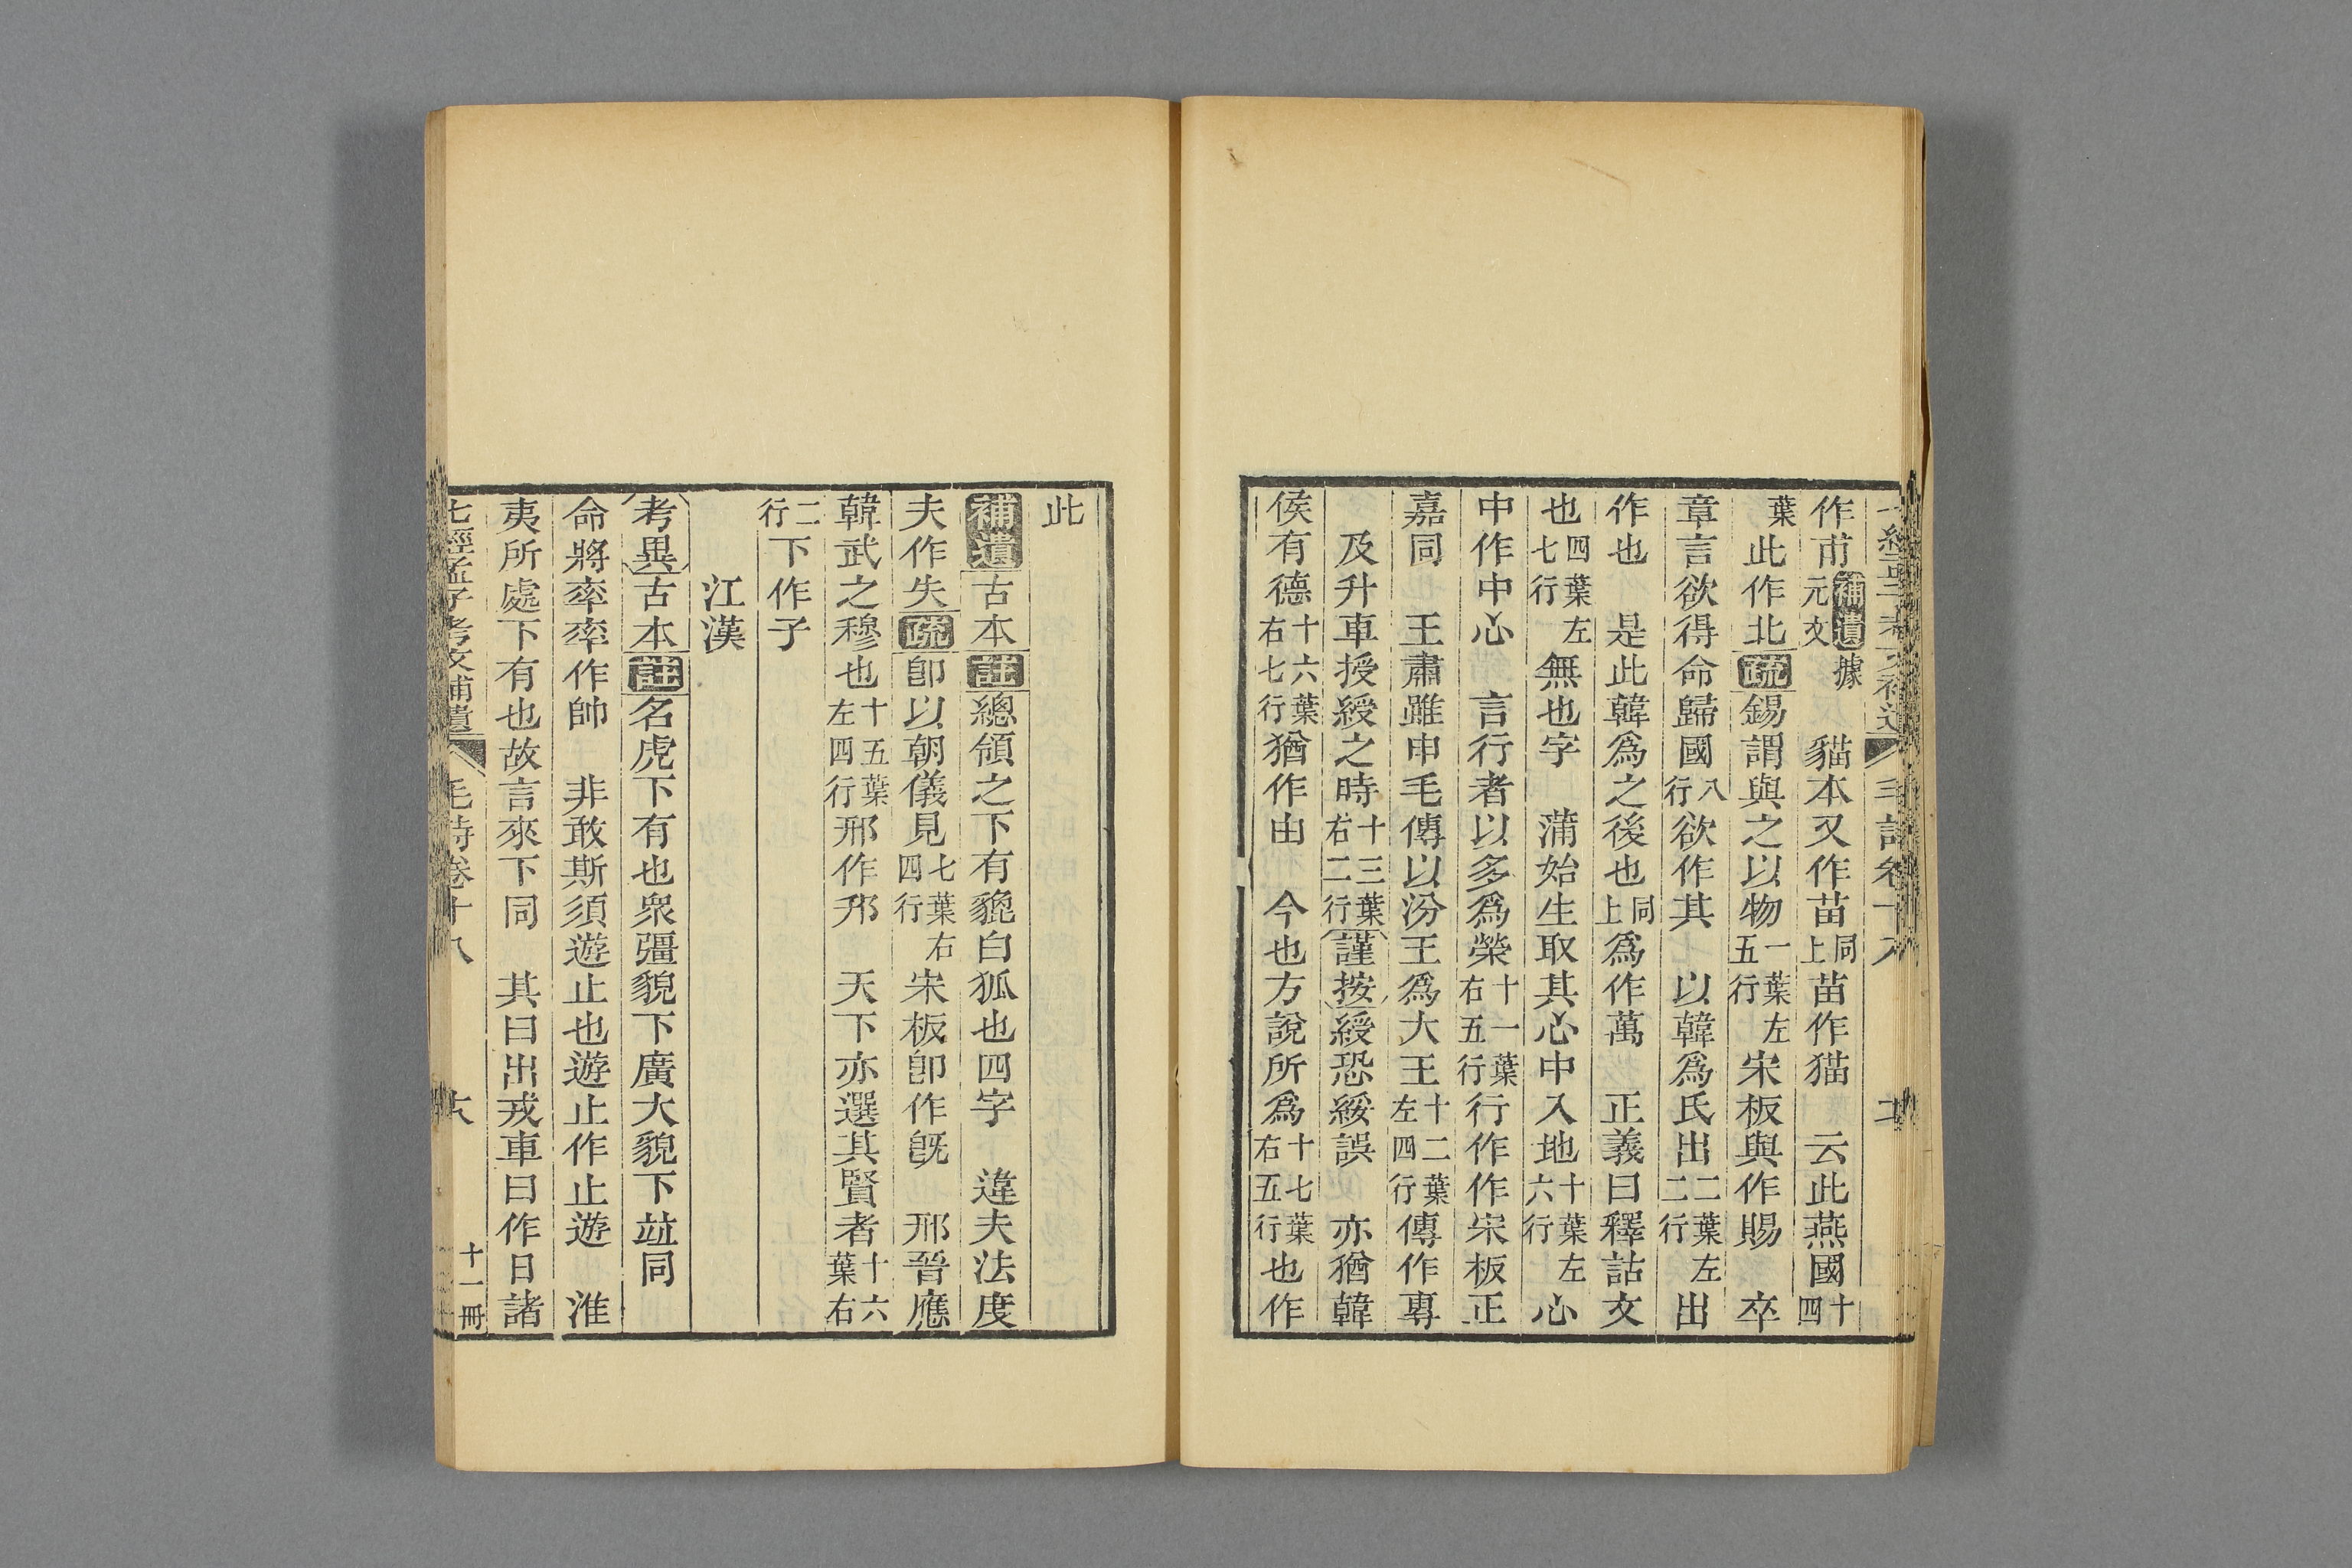 作甫補遺據元文　貓本又作苗同上苗作猫　云此燕國十四
葉此作北疏錫謂與之以物一葉左五行宋板與作賜　卒
章言欲得命歸國八行欲作其　以韓爲氏出二葉左二行出
作也　是此韓爲之後也同上爲作萬　正義曰釋詁文
也四葉左七行無也字　蒲始生取其心中入地十葉左六行心
中作中心　言行者以多爲榮十一葉右五行行作作宋板正
嘉同　王肅雖申毛傳以汾王爲大王十二葉左四行傳作專
及升車授綬之時十三葉右二行謹按綬恐綏誤　亦猶韓
侯有德十六葉右七行猶作由　今也方說所爲十七葉右五行也作
此
補遺古本註總領之下有貔白狐也四字　違夫法度
夫作失疏卽以朝儀見七葉右四行宋板卽作旣　邢晉應
韓武之穆也十五葉左四行邢作邘　天下亦選其賢者十六葉右
二行下作子
江漢
考異古本註名虎下有也衆彊貌下廣大貌下竝同
命將率率作帥　非敢斯須遊止也遊止作止遊　淮
夷所處下有也故言來下同　其曰出戎車曰作日諸
七經孟子考文補遺　毛詩卷十八　十一冊